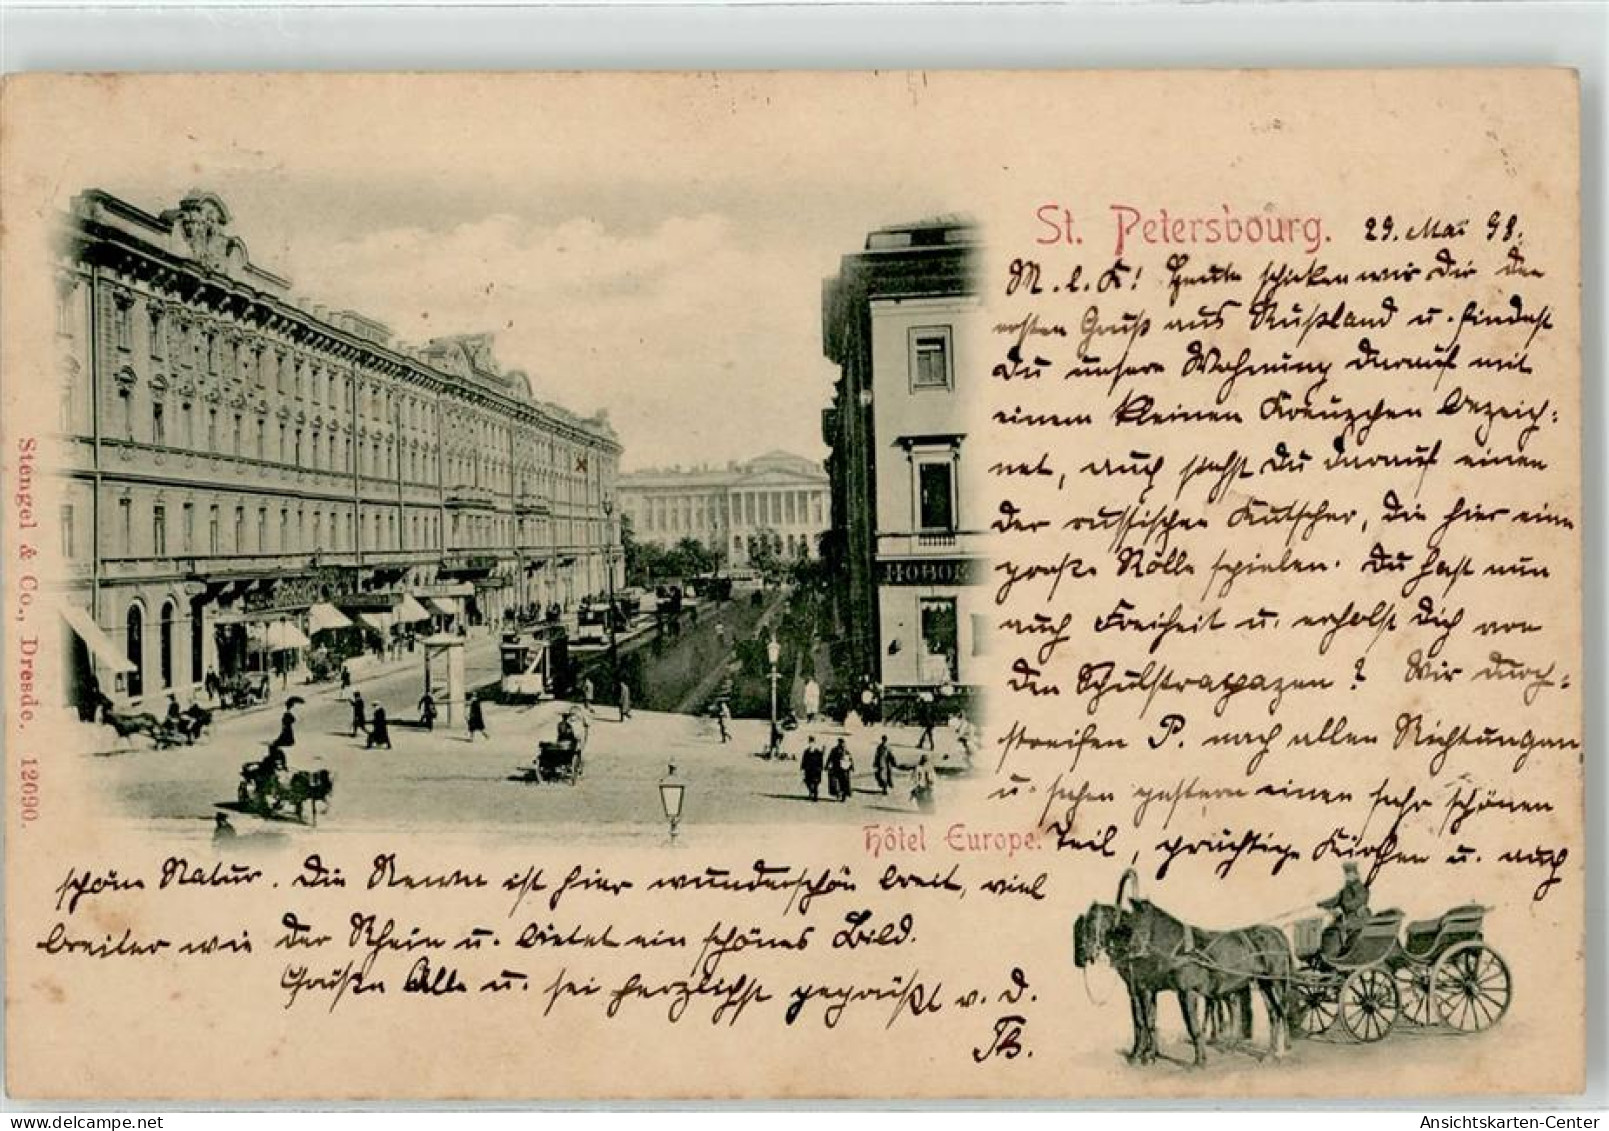 St. Petersbourg. 29. Mai 98.
M. l. K! Heute schicken wir Dir den
ersten Gruß aus Rußland u. findest
Du unsere Wohnung darauf mit
einem kleinen Kreuzchen bezeich:
net, auch siehst Du darauf einen
der russischen Kutscher, die hier eine
große Rolle spielen. Du hast nun
auch Freiheit u. erholst Dich von
den Schulstrapazen? Wir durch:
streifen P. nach allen Richtungen
u. sahen gestern einen sehr schönen
Teil, prächtige Kirchen u. auch
schöne Natur. Die Newa ist hier wunderschön breit, viel
breiter wie der Rhein u. bietet ein schönes Bild.
Grüße Alle u. sei herzlichst gegrüßt v. D.
Th.
Hôtel Europe.
Stengel & Co., Dresde. 12090.
Ansichtskarten-Center